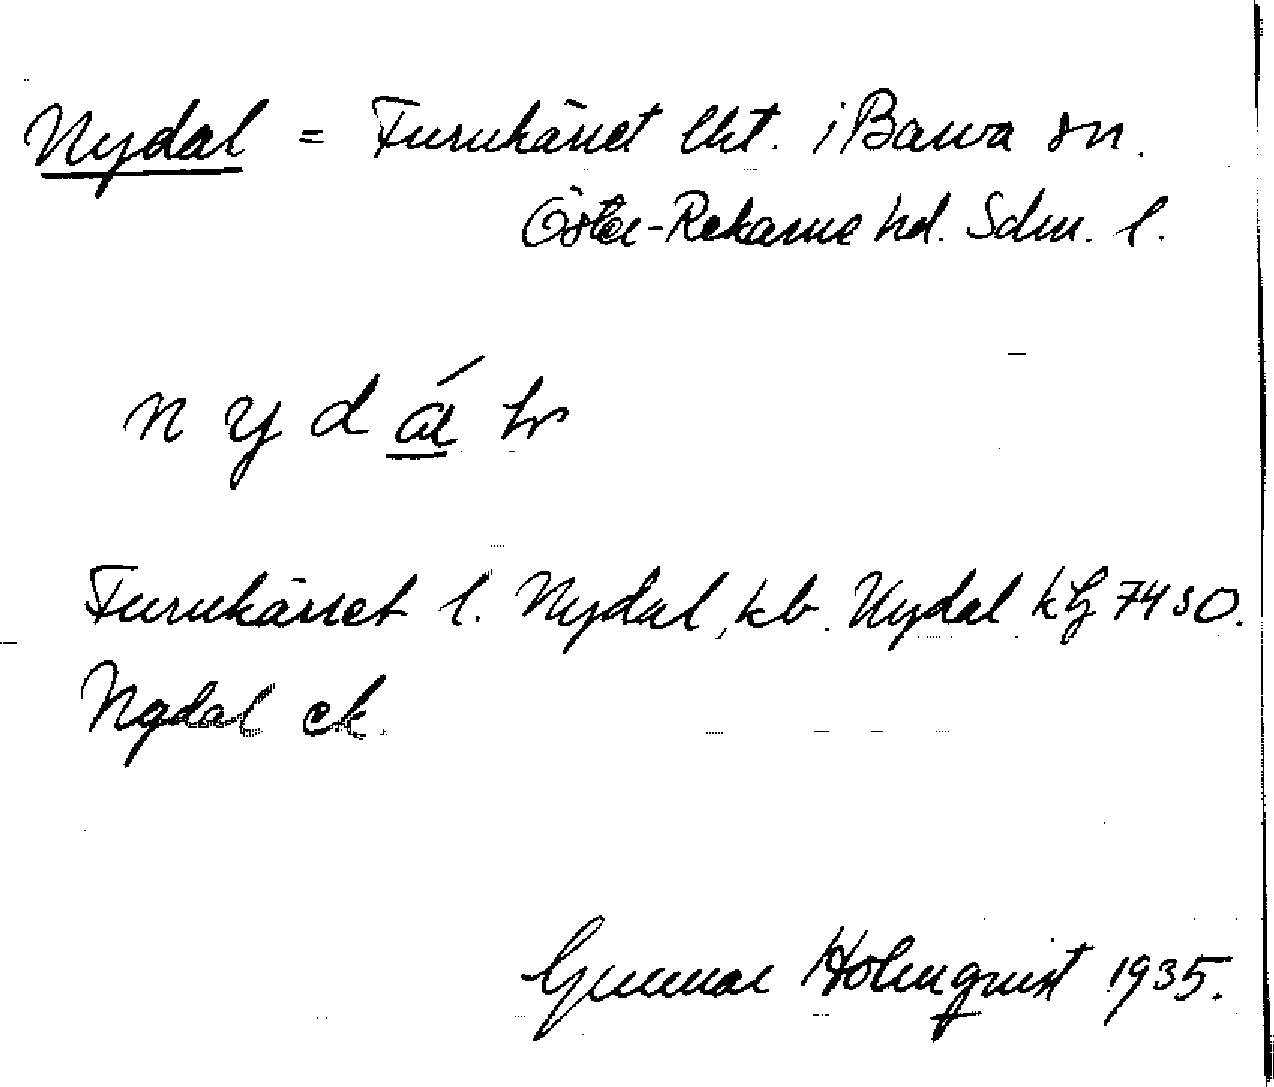 Nydal = Furukärret lht. i Barva sn.
Öster-Rekarne hd. Sdm. l.
n y d á l
Furukärret l. Nydal, kb. Nydal kG 74 SO.
Nydal ek.
Gunnar Holmquist 1935.